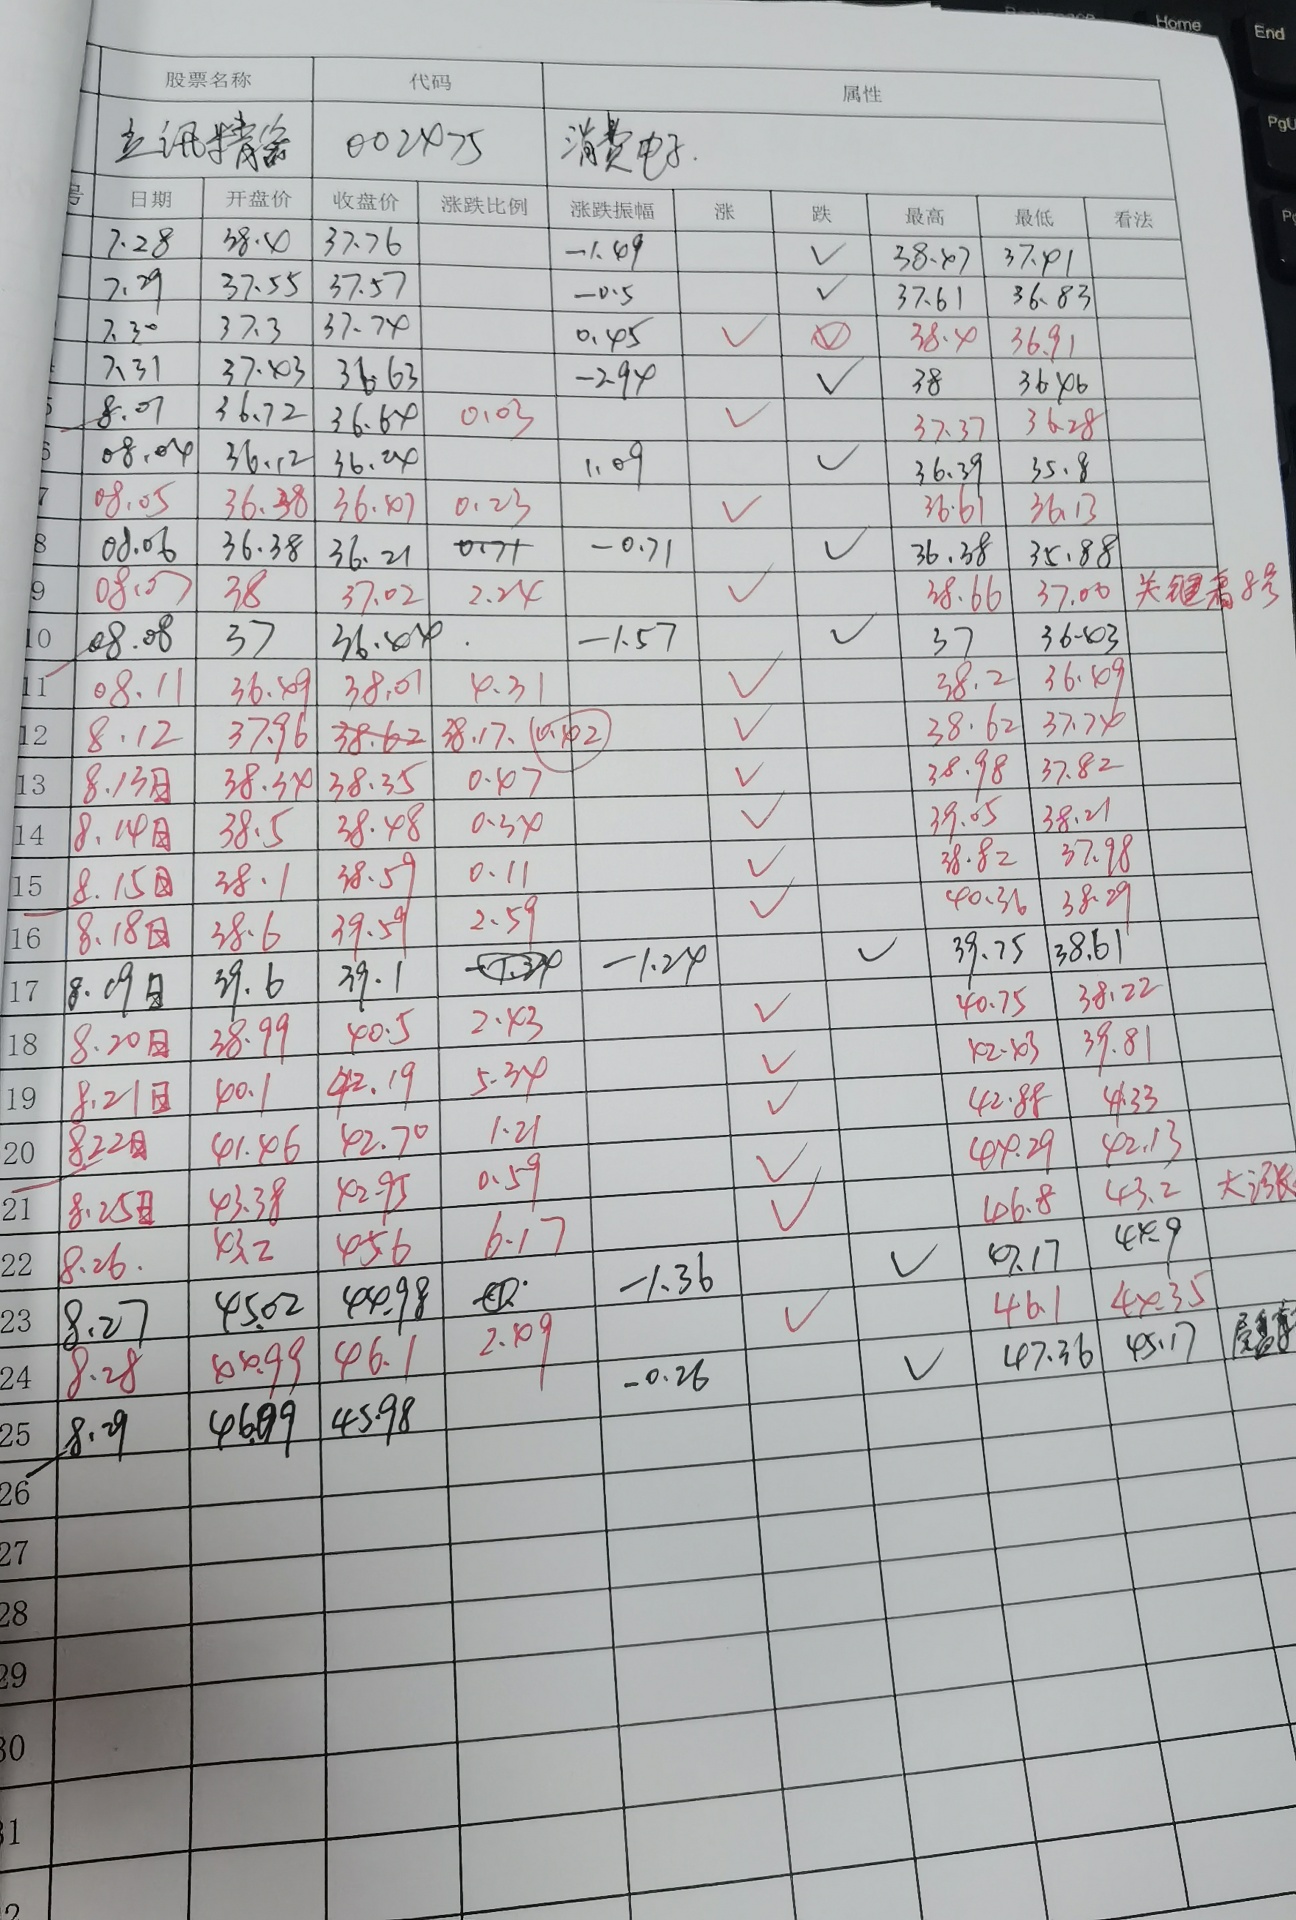 Home
End
PgU
股票名称 代码 属性
立讯精密 002475 消费电子.
号 日期 开盘价 收盘价 涨跌比例 涨跌振幅 涨 跌 最高 最低 看法
7.28 38.4 37.76 -1.49 ✓ 38.47 37.41
7.29 37.55 37.57 -0.5 ✓ 37.61 36.83
7.30 37.3 37.74 0.45 ✓ 38.4 36.91
7.31 37.43 36.63 -2.94 ✓ 38 36.46
8.01 36.72 36.64 0.03 ✓ 37.37 36.28
6 08.04 36.12 36.24 1.09 ✓ 36.39 35.8
7 08.05 36.38 36.47 0.23 ✓ 36.61 36.13
8 08.06 36.38 36.21 0.71 -0.71 ✓ 36.38 35.88
9 08.07 38 37.02 2.24 ✓ 38.66 37.00 关键看8号
10 08.08 37 36.44 -1.57 ✓ 37 36.43
11 08.11 36.49 38.01 4.31 ✓ 38.2 36.49
12 8.12 37.96 38.62 38.17. 0.42 ✓ 38.62 37.74
13 8.13日 38.34 38.35 0.47 ✓ 38.98 37.82
14 8.14日 38.5 38.48 0.34 ✓ 39.05 38.21
15 8.15日 38.1 38.59 0.11 ✓ 38.82 37.98
16 8.18日 38.6 39.59 2.59 ✓ 40.36 38.29
17 8.19日 39.6 39.1 -1.24 ✓ 39.75 38.61
18 8.20日 38.99 40.5 2.43 ✓ 40.75 38.22
19 8.21日 40.1 42.19 5.34 ✓ 42.43 39.81
20 8.22日 41.46 42.70 1.21 ✓ 42.88 41.33
21 8.25日 43.38 42.95 0.59 ✓ 44.29 42.13
22 8.26. 43.2 45.6 6.17 ✓ 46.8 43.2 大涨
23 8.27 45.02 44.98 -1.36 ✓ 47.17 44.9
24 8.28 44.99 46.1 2.49 ✓ 46.1 44.35
25 8.29 46.99 45.98 -0.26 ✓ 47.36 45.17
26
27
28
29
30
31